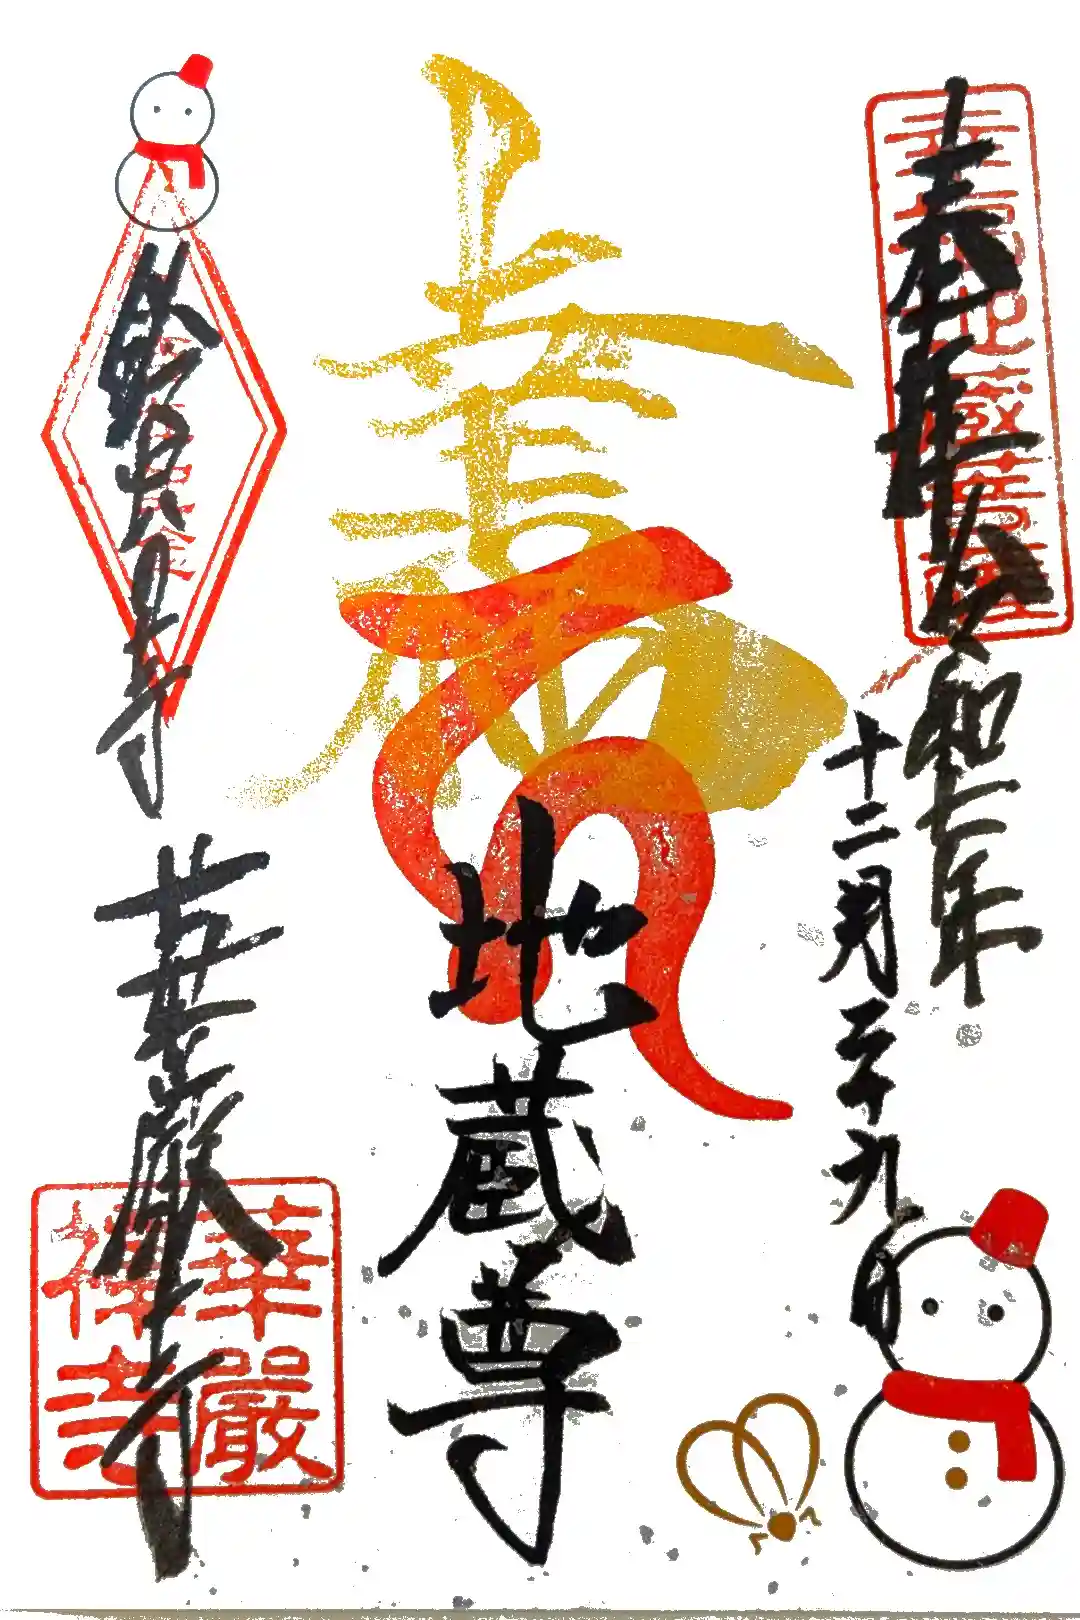 奉拝
令和七年
十二月二十九日
幸福地蔵菩薩
地蔵尊
鈴虫寺
華厳寺
華嚴
禅寺